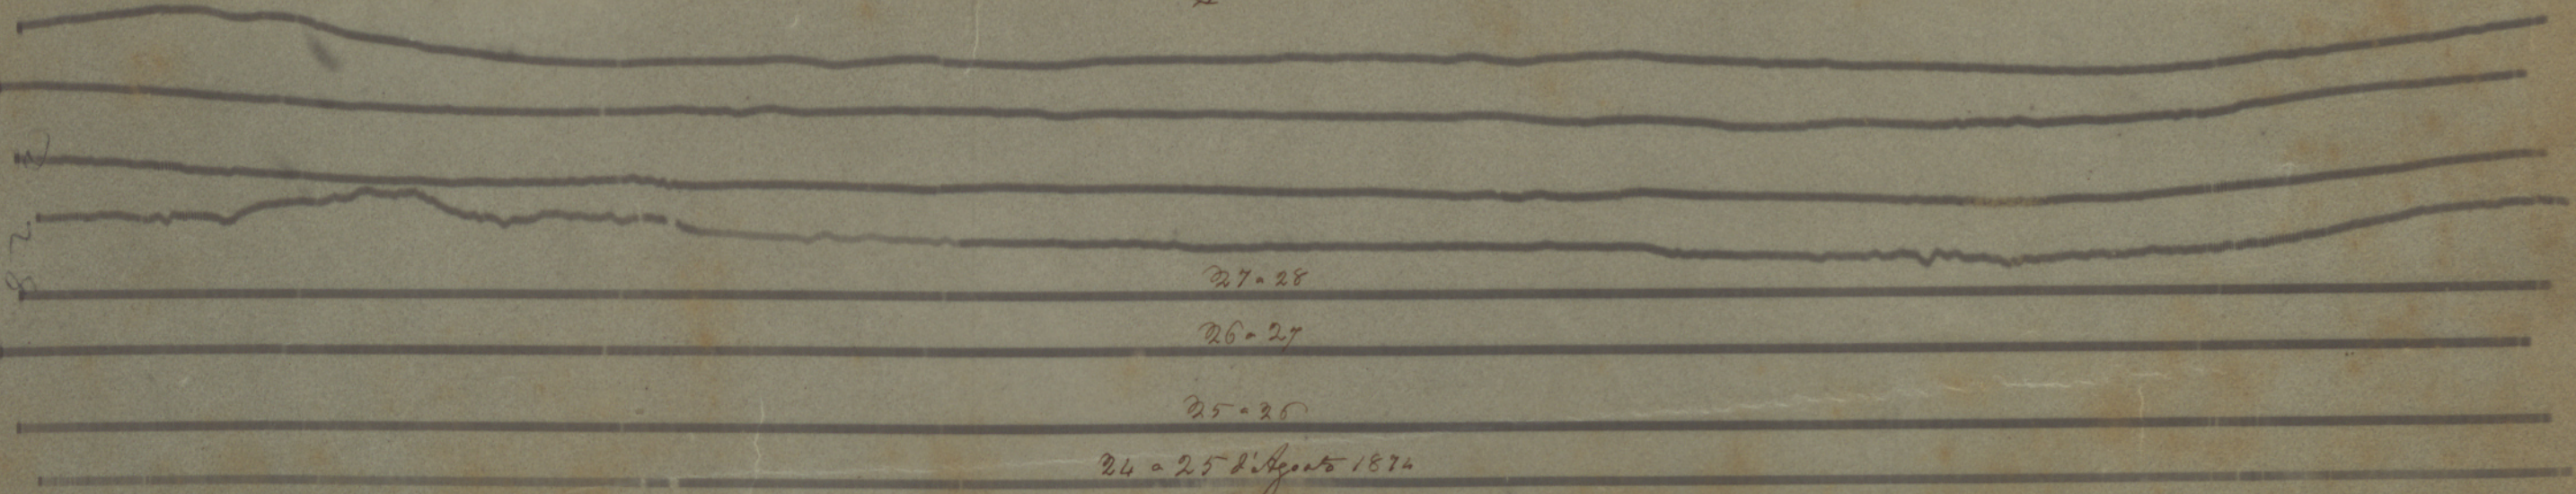 27 a 28
26 a 27
25 a 26
24 a 25 d'Agosto 1874